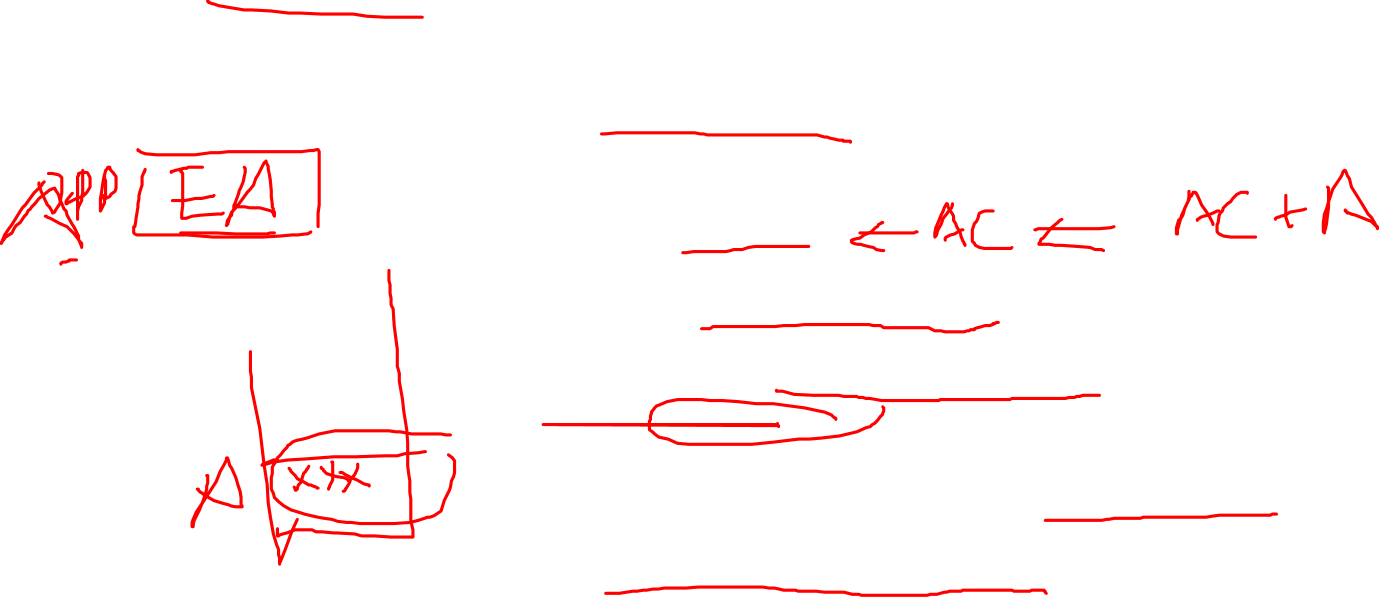 APP EA
← AC ← AC + A
A XXX